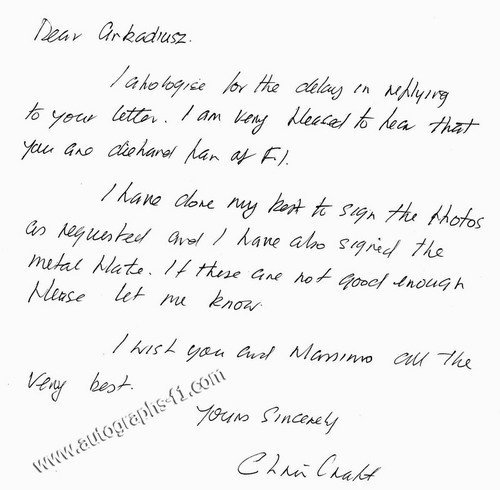 Dear Arkadiusz.
I apologise for the delay in replying
to your letter. I am very pleased to hear that
you are diehard fan of F1.
I have done my best to sign the photos
as requested and I have also signed the
metal plate. If these are not good enough
please let me know.
I wish you and Massimo all the
very best.
www.autographs-f1.com
Yours Sincerely
Chris Craft